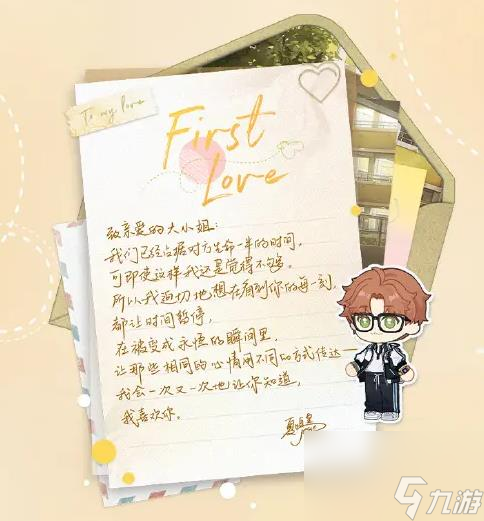 To my love
First
Love
致亲爱的大小姐：
我们已经占据对方生命一半的时间，
可即使这样我还是觉得不够。
所以我迫切地想在看到你的每一刻，
都让时间暂停，
在被变成永恒的瞬间里，
让那些相同的心情用不同的方式传达——
我会一次又一次地让你知道，
我喜欢你。
夏鸣星
九游